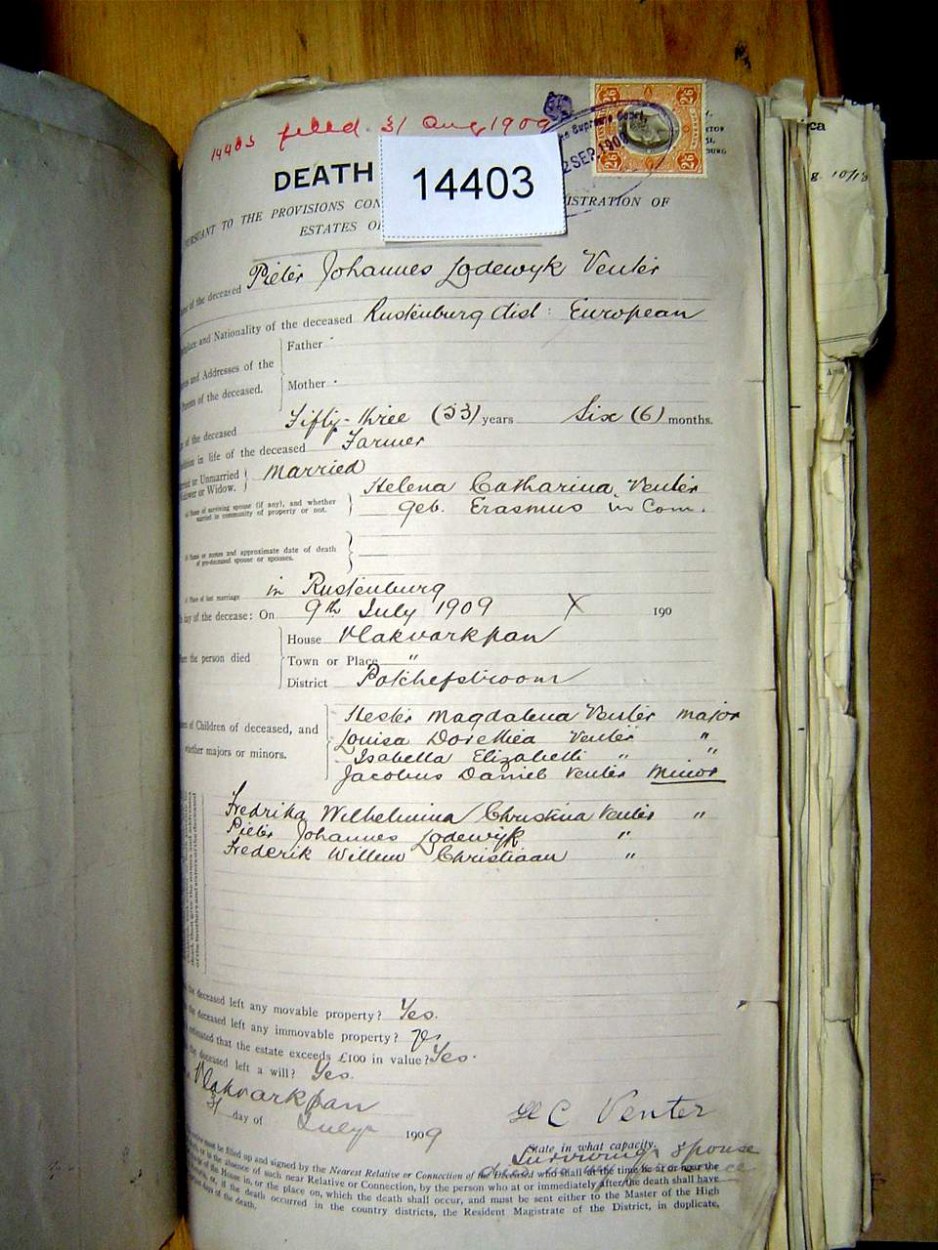 14403 filed 31 Aug 1909
2/6 2/6
Supreme Court
2 SEP. 1909
2/6 2/6
DEATH
14403
PURSUANT TO THE PROVISIONS CON ISTRATION OF
ESTATES O
of the deceased Pieter Johannes Lodewyk Venter
place and Nationality of the deceased Rustenburg dist: European
Father
and Addresses of the
Parents of the deceased.
Mother
of the deceased Fifty-three (53) years Six (6) months.
in life of the deceased Farmer
or Unmarried
or Widow. Married
Name of surviving spouse (if any), and whether
married in community of property or not.
Helena Catharina Venter
geb. Erasmus in Com.
Name or names and approximate date of death
of pre-deceased spouse or spouses.
Place of last marriage in Rustenburg
day of the decease: On 9th July 1909 X 190
House Vlakvarkpan
the person died Town or Place "
District Potchefstroom
of Children of deceased, and
whether majors or minors.
Hester Magdalena Venter major
Louisa Dorethea Venter "
Isabella Elizabeth " "
Jacobus Daniel Venter Minor
Fredrika Wilhelmina Christina Venter "
Pieter Johannes Lodewyk "
Frederik Willem Christiaan "
deceased left any movable property? Yes.
deceased left any immovable property?
estimated that the estate exceeds £100 in value? Yes.
the deceased left a will? Yes.
Vlakvarkpan
31 day of July 1909
H C Venter
State in what capacity.
Surviving Spouse
must be filled up and signed by the Nearest Relative or Connection of the Deceased who shall at the time be at or near the
in the absence of such near Relative or Connection, by the person who at or immediately after the death shall have
of the House in, or the place on, which the death shall occur, and must be sent either to the Master of the High
if the death occurred in the country districts, the Resident Magistrate of the District, in duplicate,
days of the death.